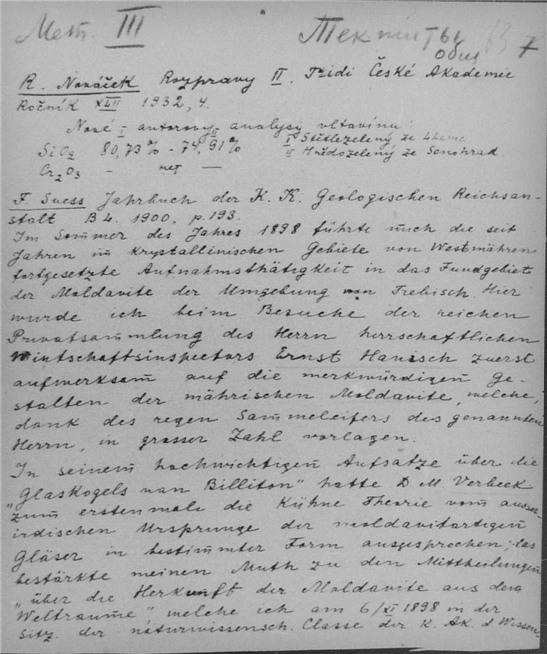 Мет. III Тектиты 7
Общ
R. Nováček Rozpravy II. Třidi České Akademie
Ročník XLII 1932, 4.
Nové autorovy analysy vltavínu:
I II
SiO2 80,73% - 74,91% I Světlezelený ze Lhenic
Cr2O3 - нет - II Hnědozelený ze Senohrad
F. Suess Jahrbuch der K. K. Geologischen Reichsan-
stalt B4. 1900. p. 193.
Im Sommer des Jahres 1898 führte mich die seit
Jahren im krystallinischen Gebiete von Westmähren
fortgesetzte Aufnahmsthätigkeit in das Fundgebiet
der Moldavite der Umgebung von Trebisch. Hier
wurde ich beim Besuche der reichen
Privatsammlung des Herrn herrschaftlichen
Wirtschaftsinspectors Ernst Hanisch zuerst
aufmerksam auf die merkwürdigen Ge-
stalten der mährischen Moldavite, welche,
dank des regen Sammeleifers des genannten
Herrn, in grosser Zahl vorlagen.
In seinem hochwichtigen Aufsatze über die
"Glaskogels van Billiton" hatte D M. Verbeek
zum erstenmale die Kühne Theorie vom ausser-
irdischen Ursprunge der moldavitartigen
Gläser in bestimmter Form ausgesprochen; das
bestärkte meinen Muth zu den Mittheilungen
"über die Herkunft der Moldavite aus dem
Weltraume" welche ich am 6/XI 1898 in der
Sitz. der naturwissensch. Classe der K. Ak. d Wissen-